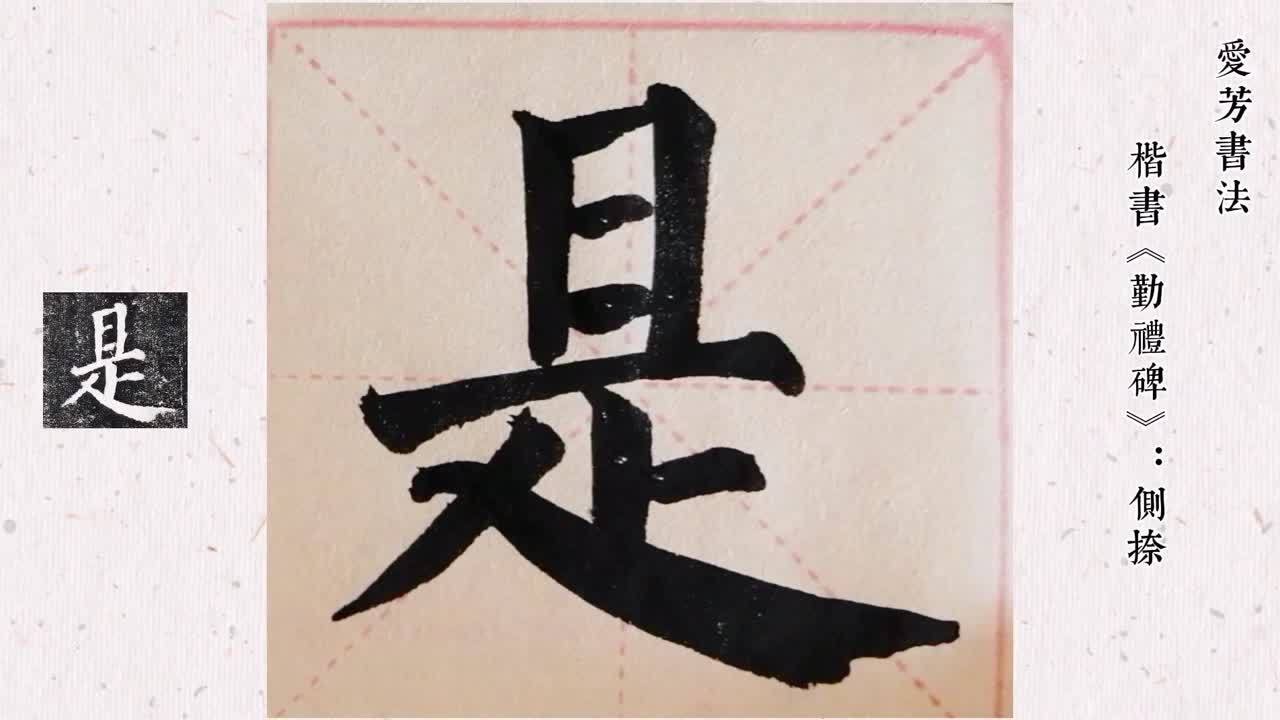 愛芳書法
楷書《勤禮碑》：側捺
是
是